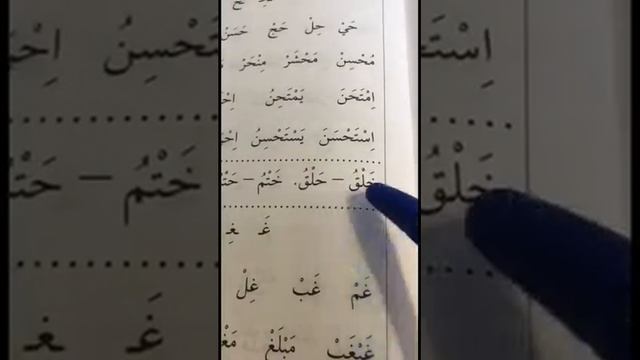 حَيْ حِلْ حَجْ حَسَنْ
مُحْسِنْ مَحْشَرْ مِنْحَرْ
اِمْتَحَنَ يَمْتَحِنُ
اِسْتَحْسَنَ يَسْتَحْسِنُ
خَلْقُ – حَلْقُ. خَتْمُ –
غَـ غِـ
غَمْ غَبْ غِلْ
غَبْغَبْ مَبْلَغْ